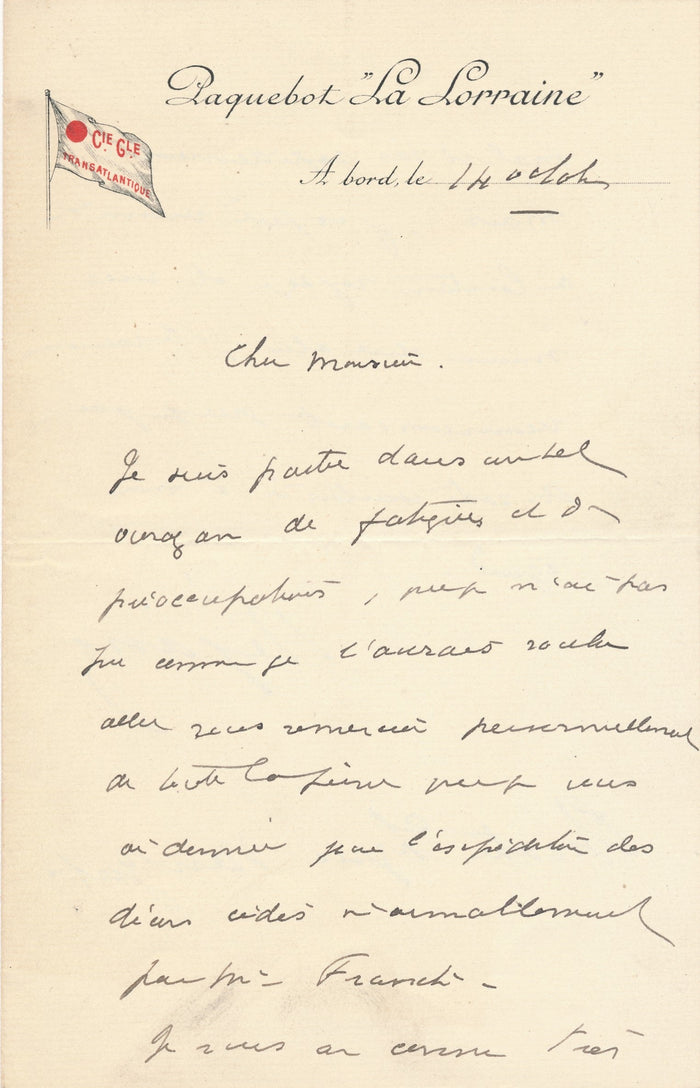 Paquebot "La Lorraine"
CIE GLE
TRANSATLANTIQUE
A bord, le 14 octob
Cher Monsieur.
Je suis partie dans un tel
ouragan de fatigues et de
préoccupations, que je n'ai pas
pu comme je l'aurais voulu
aller vous remercier personnellement
de toute la peine que je vous
ai donnée pour l'expédition des
décors cédés
par Mr Franck -
Je vous en conserve très